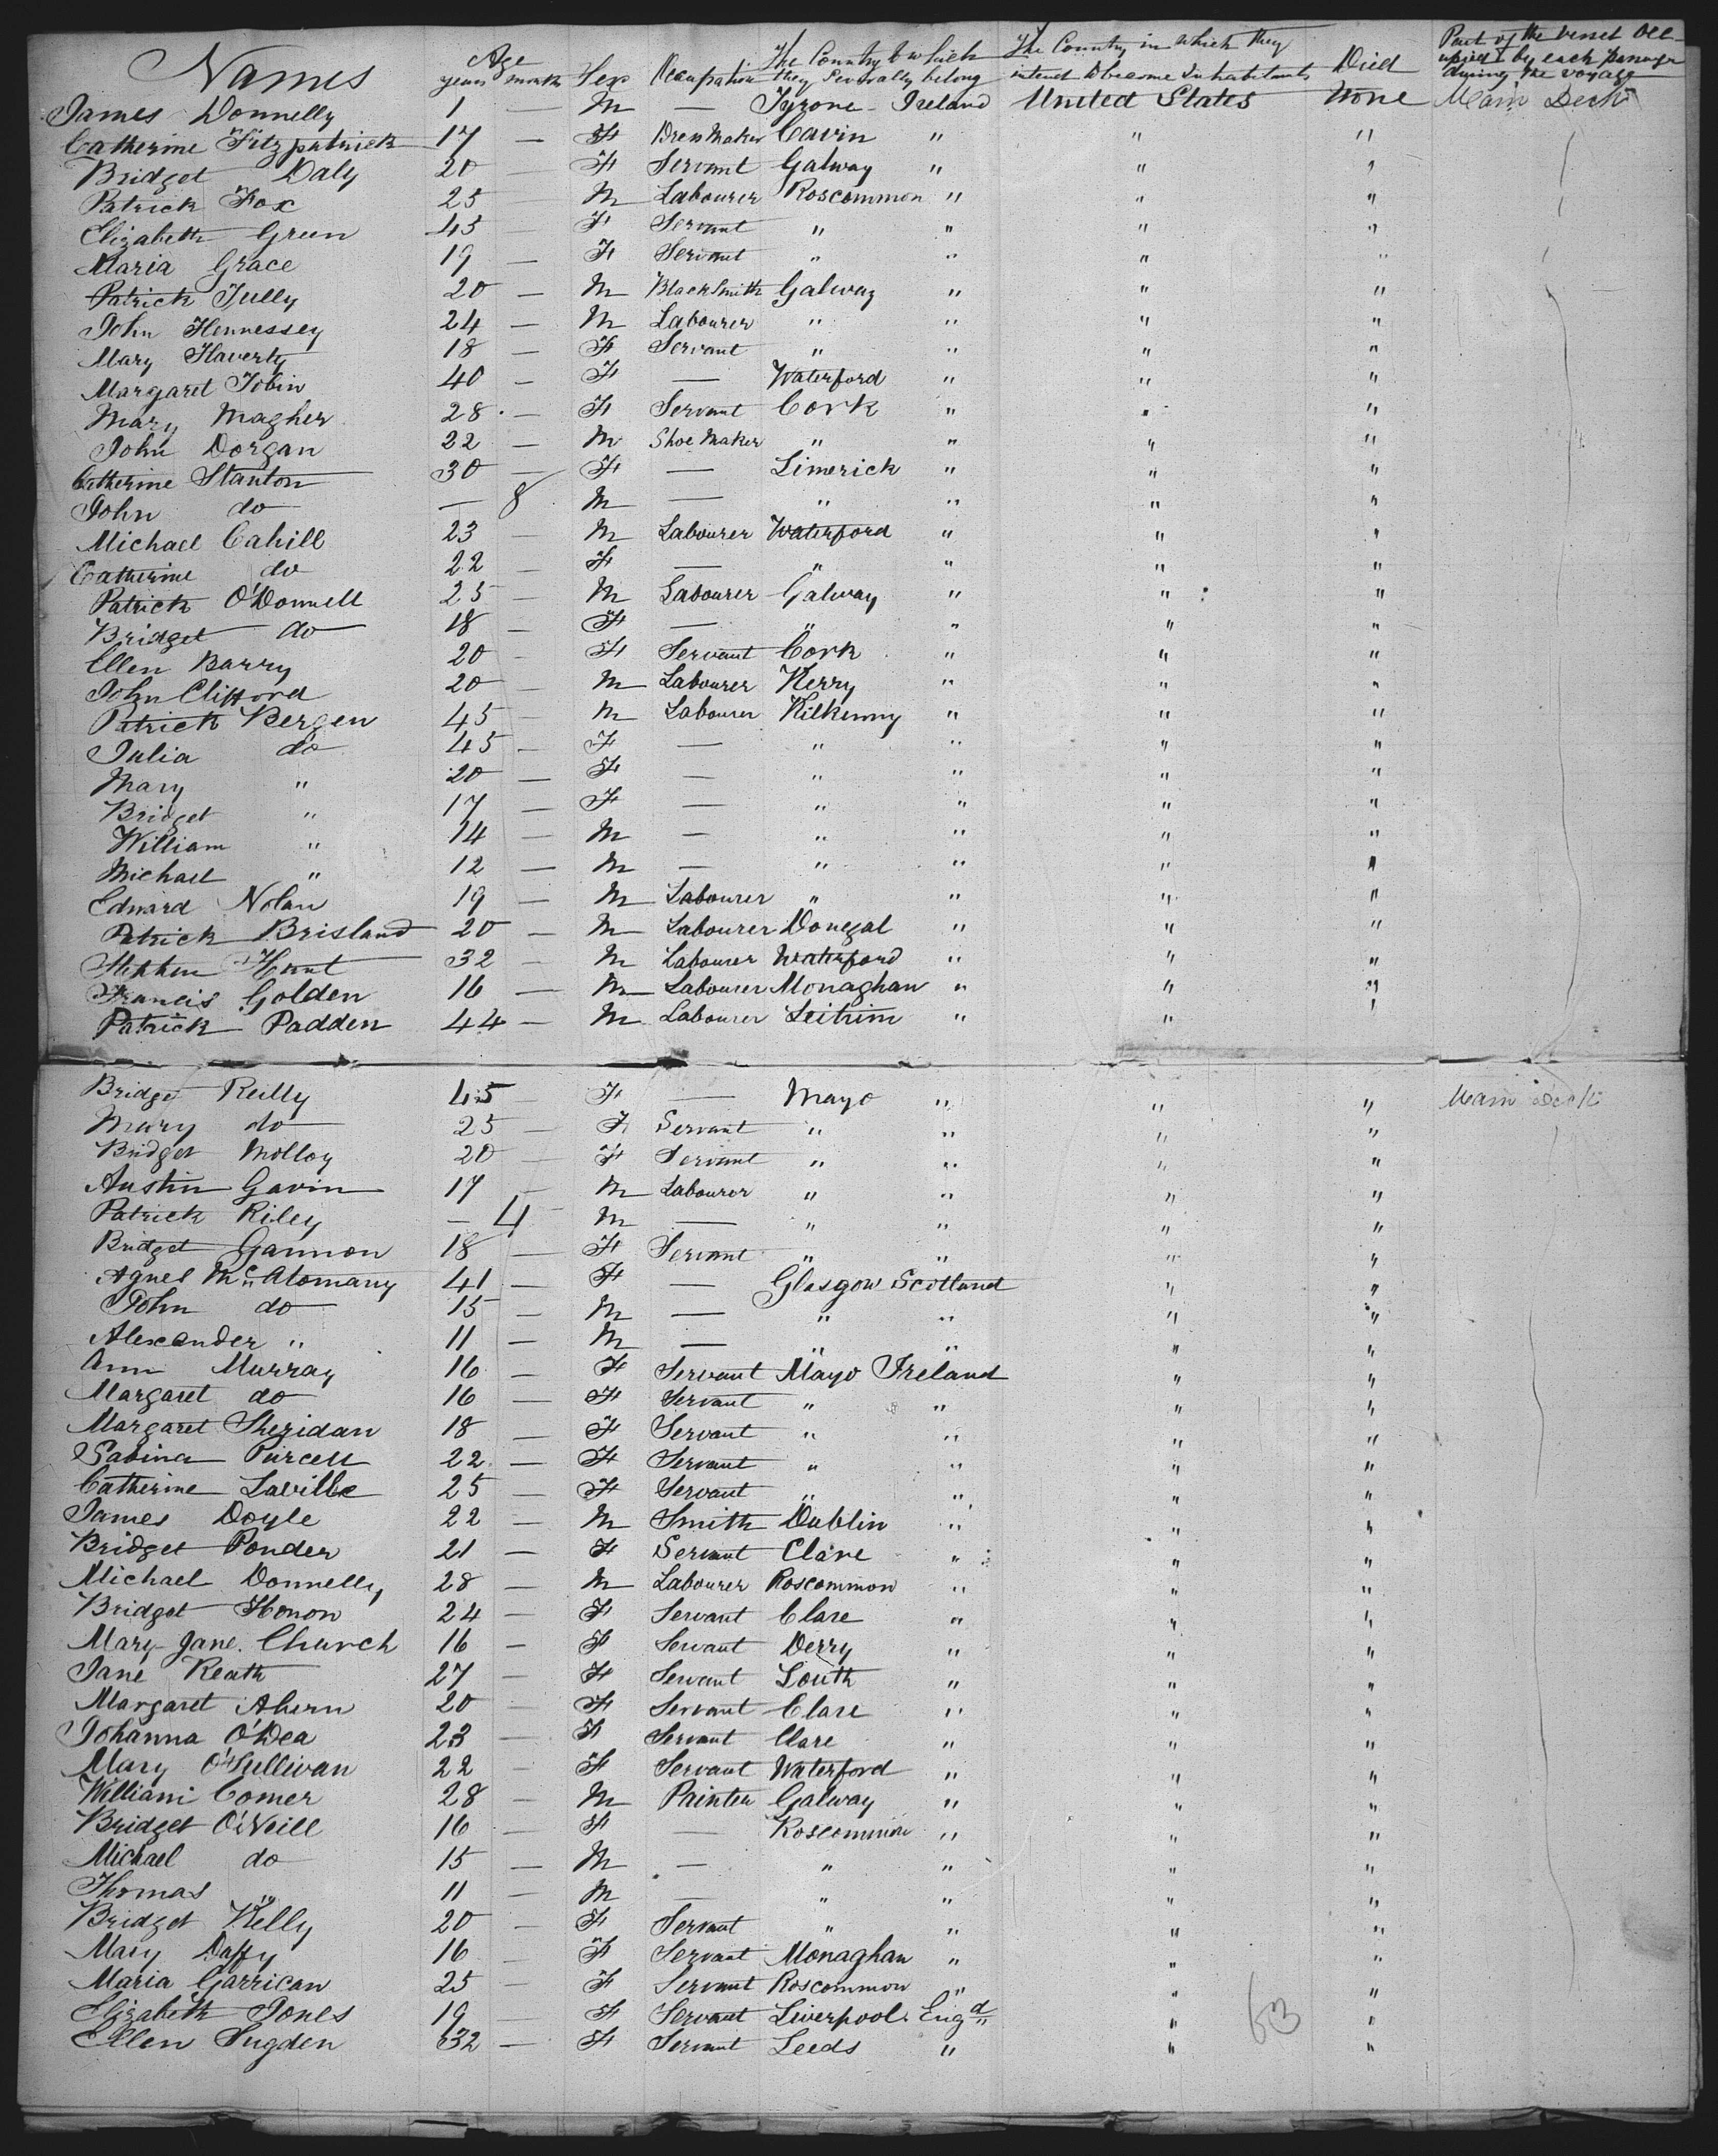 Names Age years months Sex Occupation The Country to which they Severally belong The Country in which they intend to become Inhabitants Died Part of the vessel Occupied by each Passenger during the voyage
James Donnelly 1 — M — Tyrone Ireland United States None Main Deck
Catherine Fitzpatrick 17 — F Dress Maker Cavin " " "
Bridget Daly 20 — F Servant Galway " " "
Patrick Fox 25 M Labourer Roscommon " " "
Elizabeth Green 45 — F Servant " " " "
Maria Grace 19 — F Servant " " " "
Patrick Tully 20 — M BlackSmith Galway " " "
John Hennessey 24 — M Labourer " " " "
Mary Haverty 18 — F Servant " " " "
Margaret Tobin 40 — F — Waterford " " "
Mary Magher 28 — F Servant Cork " " "
John Dorgan 22 — M Shoe Maker " " " "
Catherine Stanton 30 — F — Limerick " " "
John do — 8 M — " " " "
Michael Cahill 23 — M Labourer Waterford " " "
Catherine do 22 — F — " " " "
Patrick O'Donnell 25 — M Labourer Galway " " "
Bridget do 18 — F — " " " "
Ellen Barry 20 — F Servant Cork " " "
John Clifford 20 — M Labourer Kerry " " "
Patrick Bergen 45 — M Labourer Kilkenny " " "
Julia do 45 — F — " " " "
Mary " 20 — F — " " " "
Bridget " 17 — F — " " " "
William " 14 — M — " " " "
Michael " 12 — M — " " " "
Edward Nolan 19 — M Labourer " " " "
Patrick Brisland 20 — M Labourer Donegal " " "
Stephen Hunt 32 — M Labourer Waterford " " "
Francis Golden 16 — M Labourer Monaghan " " "
Patrick Padden 44 — M Labourer Leitrim " " "
Bridget Reilly 45 — F — Mayo " " " Main Deck
Mary do 25 — F Servant " " " "
Bridget Molloy 20 F Servant " " " "
Austin Gavin 17 — M Labourer " " " "
Patrick Riley — 4 M — " " " "
Bridget Gannon 18 — F Servant " " " "
Agnes McAlomany 41 — F — Glasgow Scotland " "
John do 15 — M — " " " "
Alexander " 11 — M — " " " "
Ann Murray 16 — F Servant Mayo Ireland " "
Margaret do 16 — F Servant " " " "
Margaret Sheridan 18 — F Servant " " " "
Sabina Purcell 22 — F Servant " " " "
Catherine Laville 25 — F Servant " " " "
James Doyle 22 — M Smith Dublin " " "
Bridget Ponder 21 — F Servant Clare " " "
Michael Donnelly 28 — M Labourer Roscommon " " "
Bridget Honon 24 — F Servant Clare " " "
Mary Jane Church 16 — F Servant Derry " " "
Jane Keath 27 — F Servant Louth " " "
Margaret Ahern 20 — F Servant Clare " " "
Johanna O'Dea 23 — F Servant Clare " " "
Mary O'Sullivan 22 — F Servant Waterford " " "
William Comer 28 — M Painter Galway " " "
Bridget O'Neill 16 — F — Roscommon " " "
Michael do 15 — M — " " " "
Thomas " 11 — M — " " " "
Bridget Kelly 20 — F Servant " " " "
Mary Daffy 16 — F Servant Monaghan " " "
Maria Garrican 25 — F Servant Roscommon " " "
Elizabeth Jones 19 — F Servant Liverpool Engd " "
Ellen Sugden 32 — F Servant Leeds " " "
63